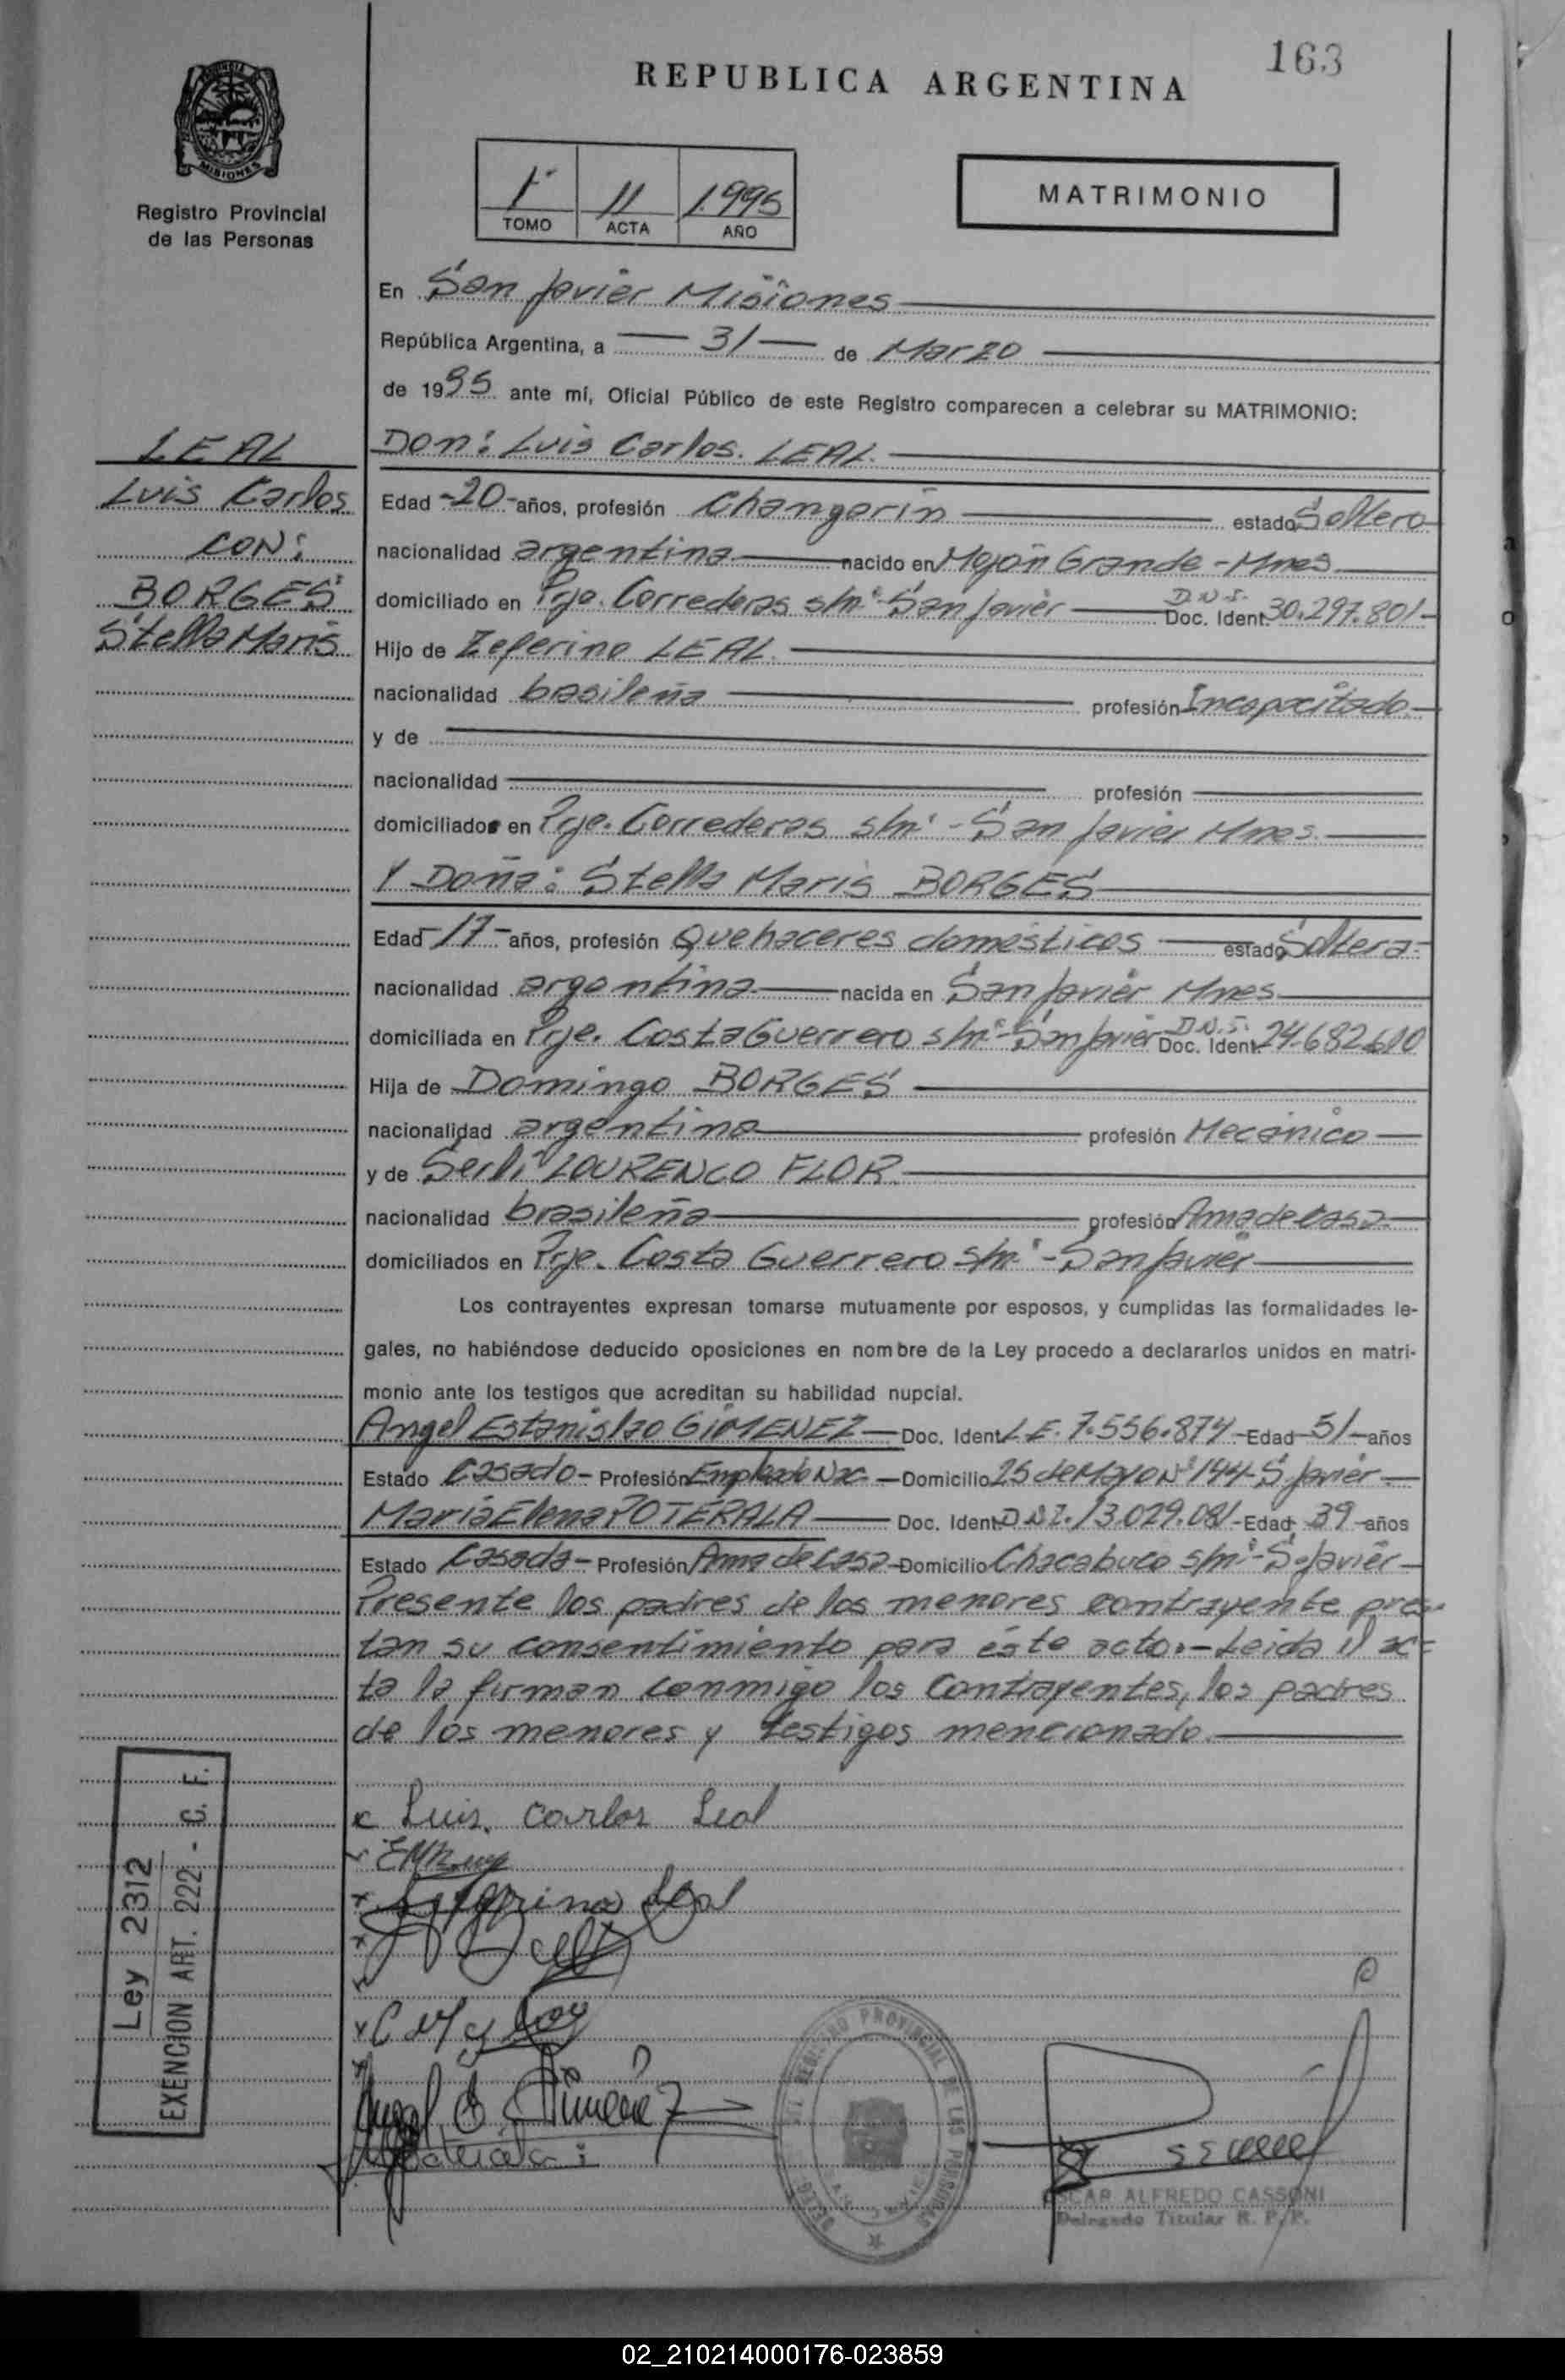 163
REPUBLICA ARGENTINA
MISIONES
Registro Provincial
de las Personas
1º 11 1.995
TOMO ACTA AÑO
MATRIMONIO
En San Javier Misiones
República Argentina, a 31 de Marzo
de 1995 ante mí, Oficial Público de este Registro comparecen a celebrar su MATRIMONIO:
LEAL
Luis Carlos
CON:
BORGES
Stella Maris
Don: Luis Carlos. LEAL.
Edad -20- años, profesión Changarin estado Soltero
nacionalidad argentina nacido en Mojón Grande - Mnes
domiciliado en Pje. Correderas s/nº - San Javier D.N.I. Doc. Ident. 30.297.801-
Hijo de Zeferino LEAL.
nacionalidad brasileña profesión Incapacitado
y de
nacionalidad profesión
domiciliados en Pje. Correderas s/nº - San Javier Mnes.
Y Doña: Stella Maris BORGES
Edad -17- años, profesión Quehaceres domésticos estado Soltera-
nacionalidad argentina nacida en San Javier Mnes
domiciliada en Pje. Costa Guerrero s/nº - San Javier D.N.I. Doc. Ident. 24.682.610
Hija de Domingo BORGES
nacionalidad argentina profesión Mecánico
y de LOURENCO FLOR.
nacionalidad brasileña profesión Ama de casa
domiciliados en Pje. Costa Guerrero s/nº - San Javier
Los contrayentes expresan tomarse mutuamente por esposos, y cumplidas las formalidades le-
gales, no habiéndose deducido oposiciones en nombre de la Ley procedo a declararlos unidos en matri-
monio ante los testigos que acreditan su habilidad nupcial.
Angel Estanislao GIMENEZ Doc. Ident. L.E. 7.556.874 - Edad 51 - años
Estado Casado - Profesión Empleado Nac. - Domicilio 25 de Mayo Nº 144 - S. Javier
María Elena POTERALA Doc. Ident. D.N.I. 13.029.081 - Edad 39 - años
Estado Casada - Profesión Ama de Casa - Domicilio Chacabuco s/nº - S. Javier
Presente los padres de los menores contrayente pres-
tan su consentimiento para éste acto.- Leida el ac-
ta la firman conmigo los Contrayentes, los padres
de los menores y testigos mencionado.
Luis. Carlos Leal
Leal
Angel E Gimenez
Ley 2312
EXENCION ART. 222 - C. F.
REGISTRO PROVINCIAL DE LAS PERSONAS
OSCAR ALFREDO CASSONI
Delegado Titular R. P. P.
02_210214000176-023859